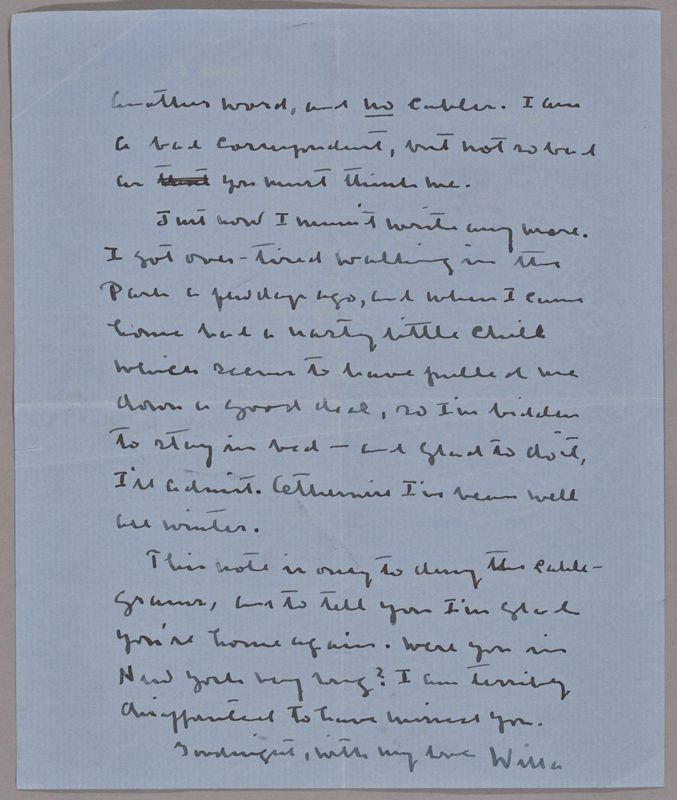 another word, and no cable. I am
a bad correspondent, but not so bad
as that you must think me.
Just now I mustn't write any more.
I got over-tired walking in the
Park a few days ago, and when I came
home had a nasty little chill
which seems to have pulled me
down a good deal, so I'm bidden
to stay in bed — and glad to do it,
I'll admit. Otherwise I've been well
all winter.
This note is only to deny the cable-
grams, and to tell you I'm glad
you're home again. Were you in
New York very long? I am terribly
disappointed to have missed you.
Goodnight, with my love Willa